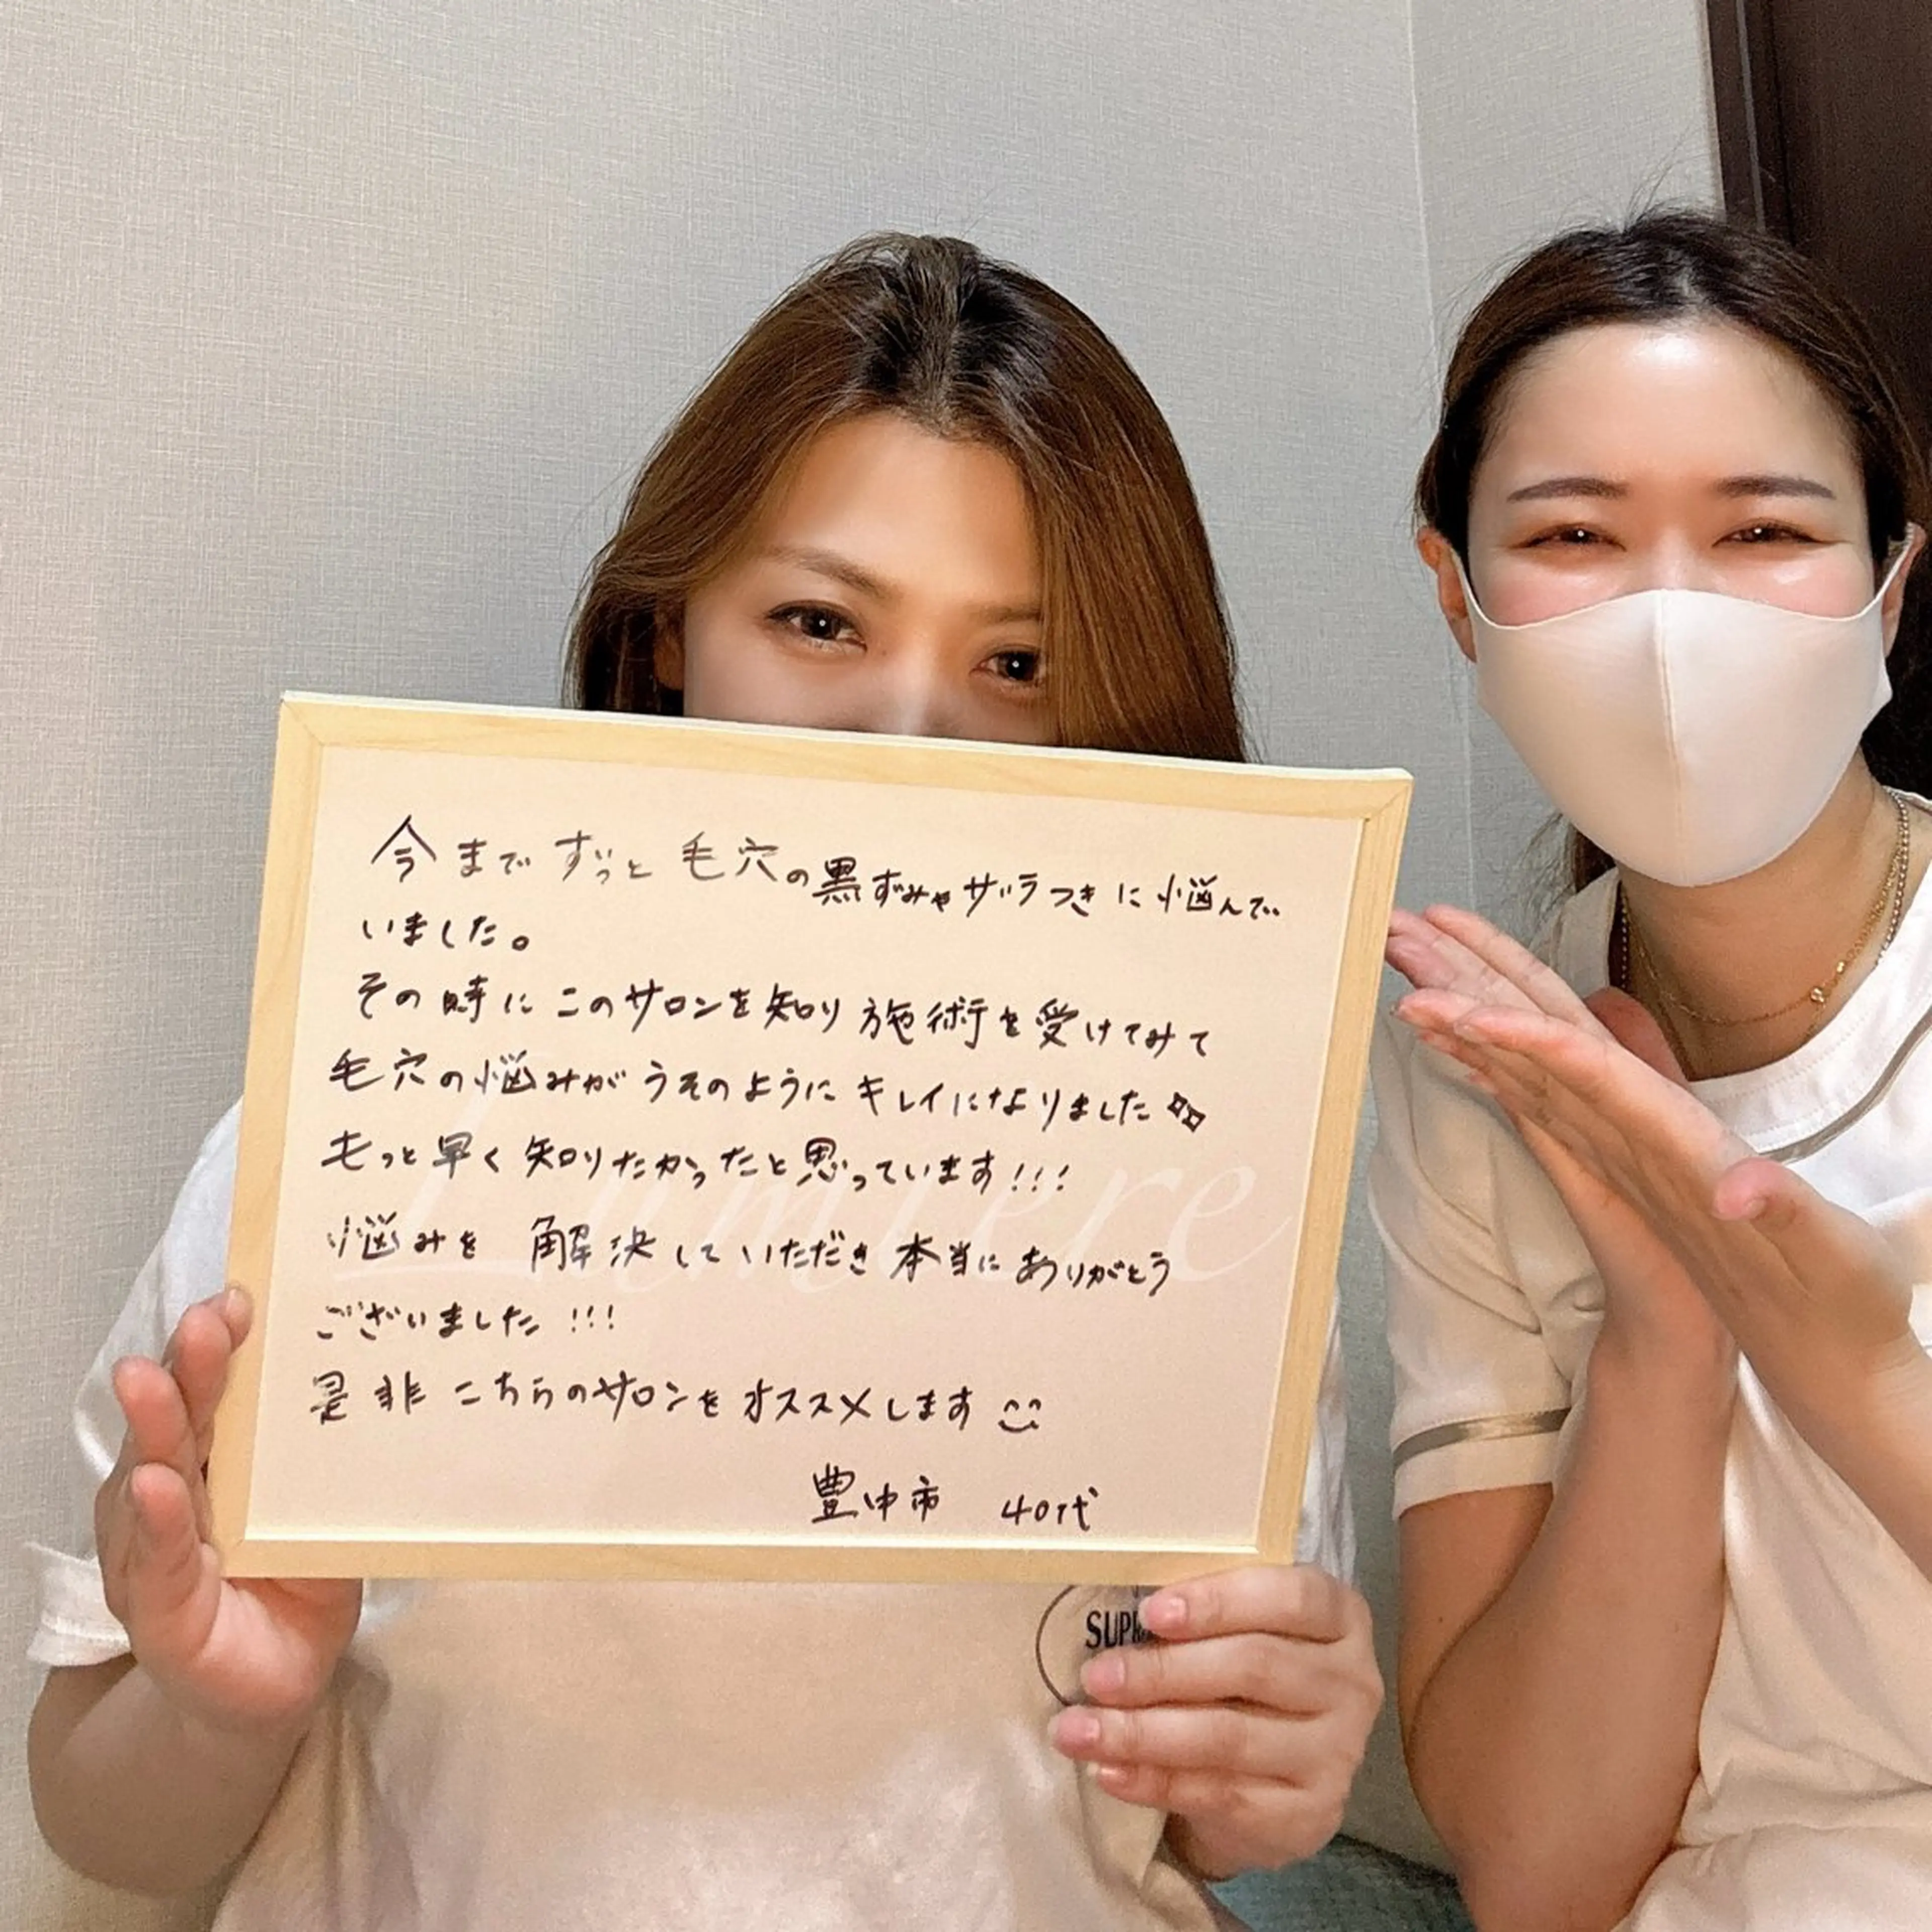 今までずっと毛穴の黒ずみやザラつきに悩んで
いました。
その時にこのサロンを知り施術を受けてみて
毛穴の悩みがうそのようにキレイになりました
もっと早く知りたかったと思っています!!!
悩みを解決していただき本当にありがとう
ございました!!!
是非こちらのサロンをオススメします
豊中市 40代
Lumiere